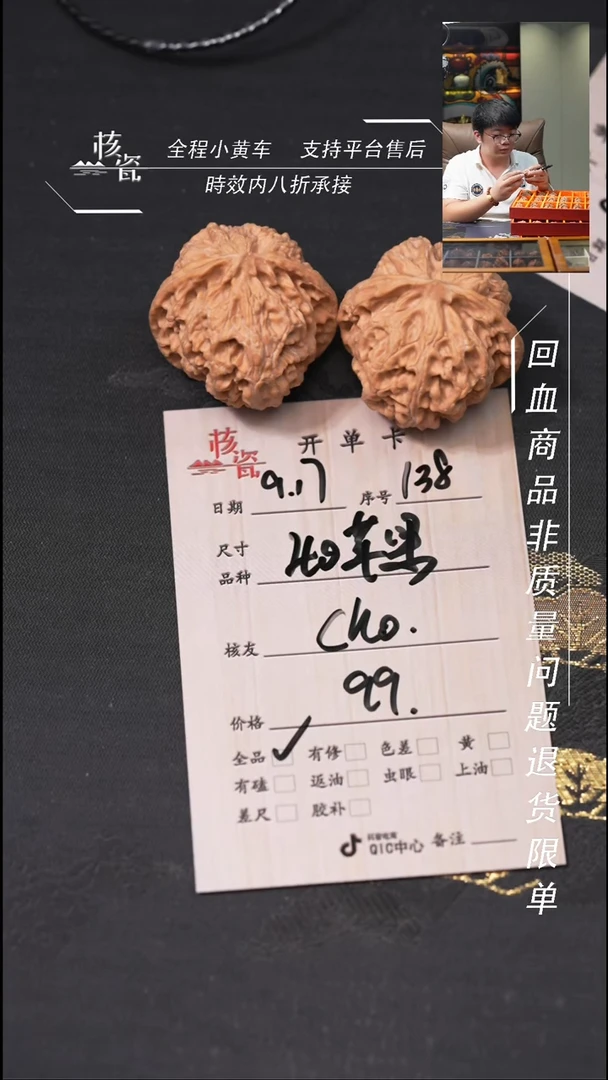 核瓷
全程小黄车 支持平台售后
時效内八折承接
回血商品非质量问题退货限单
核瓷
开单卡
日期 9.17 序号 138
尺寸
品种 40苹果
核友 Cho.
价格 99.
全品 ✓ 有修 色差 黄
有磕 返油 虫眼 上油
差尺 胶补
抖音电商
QIC中心 备注